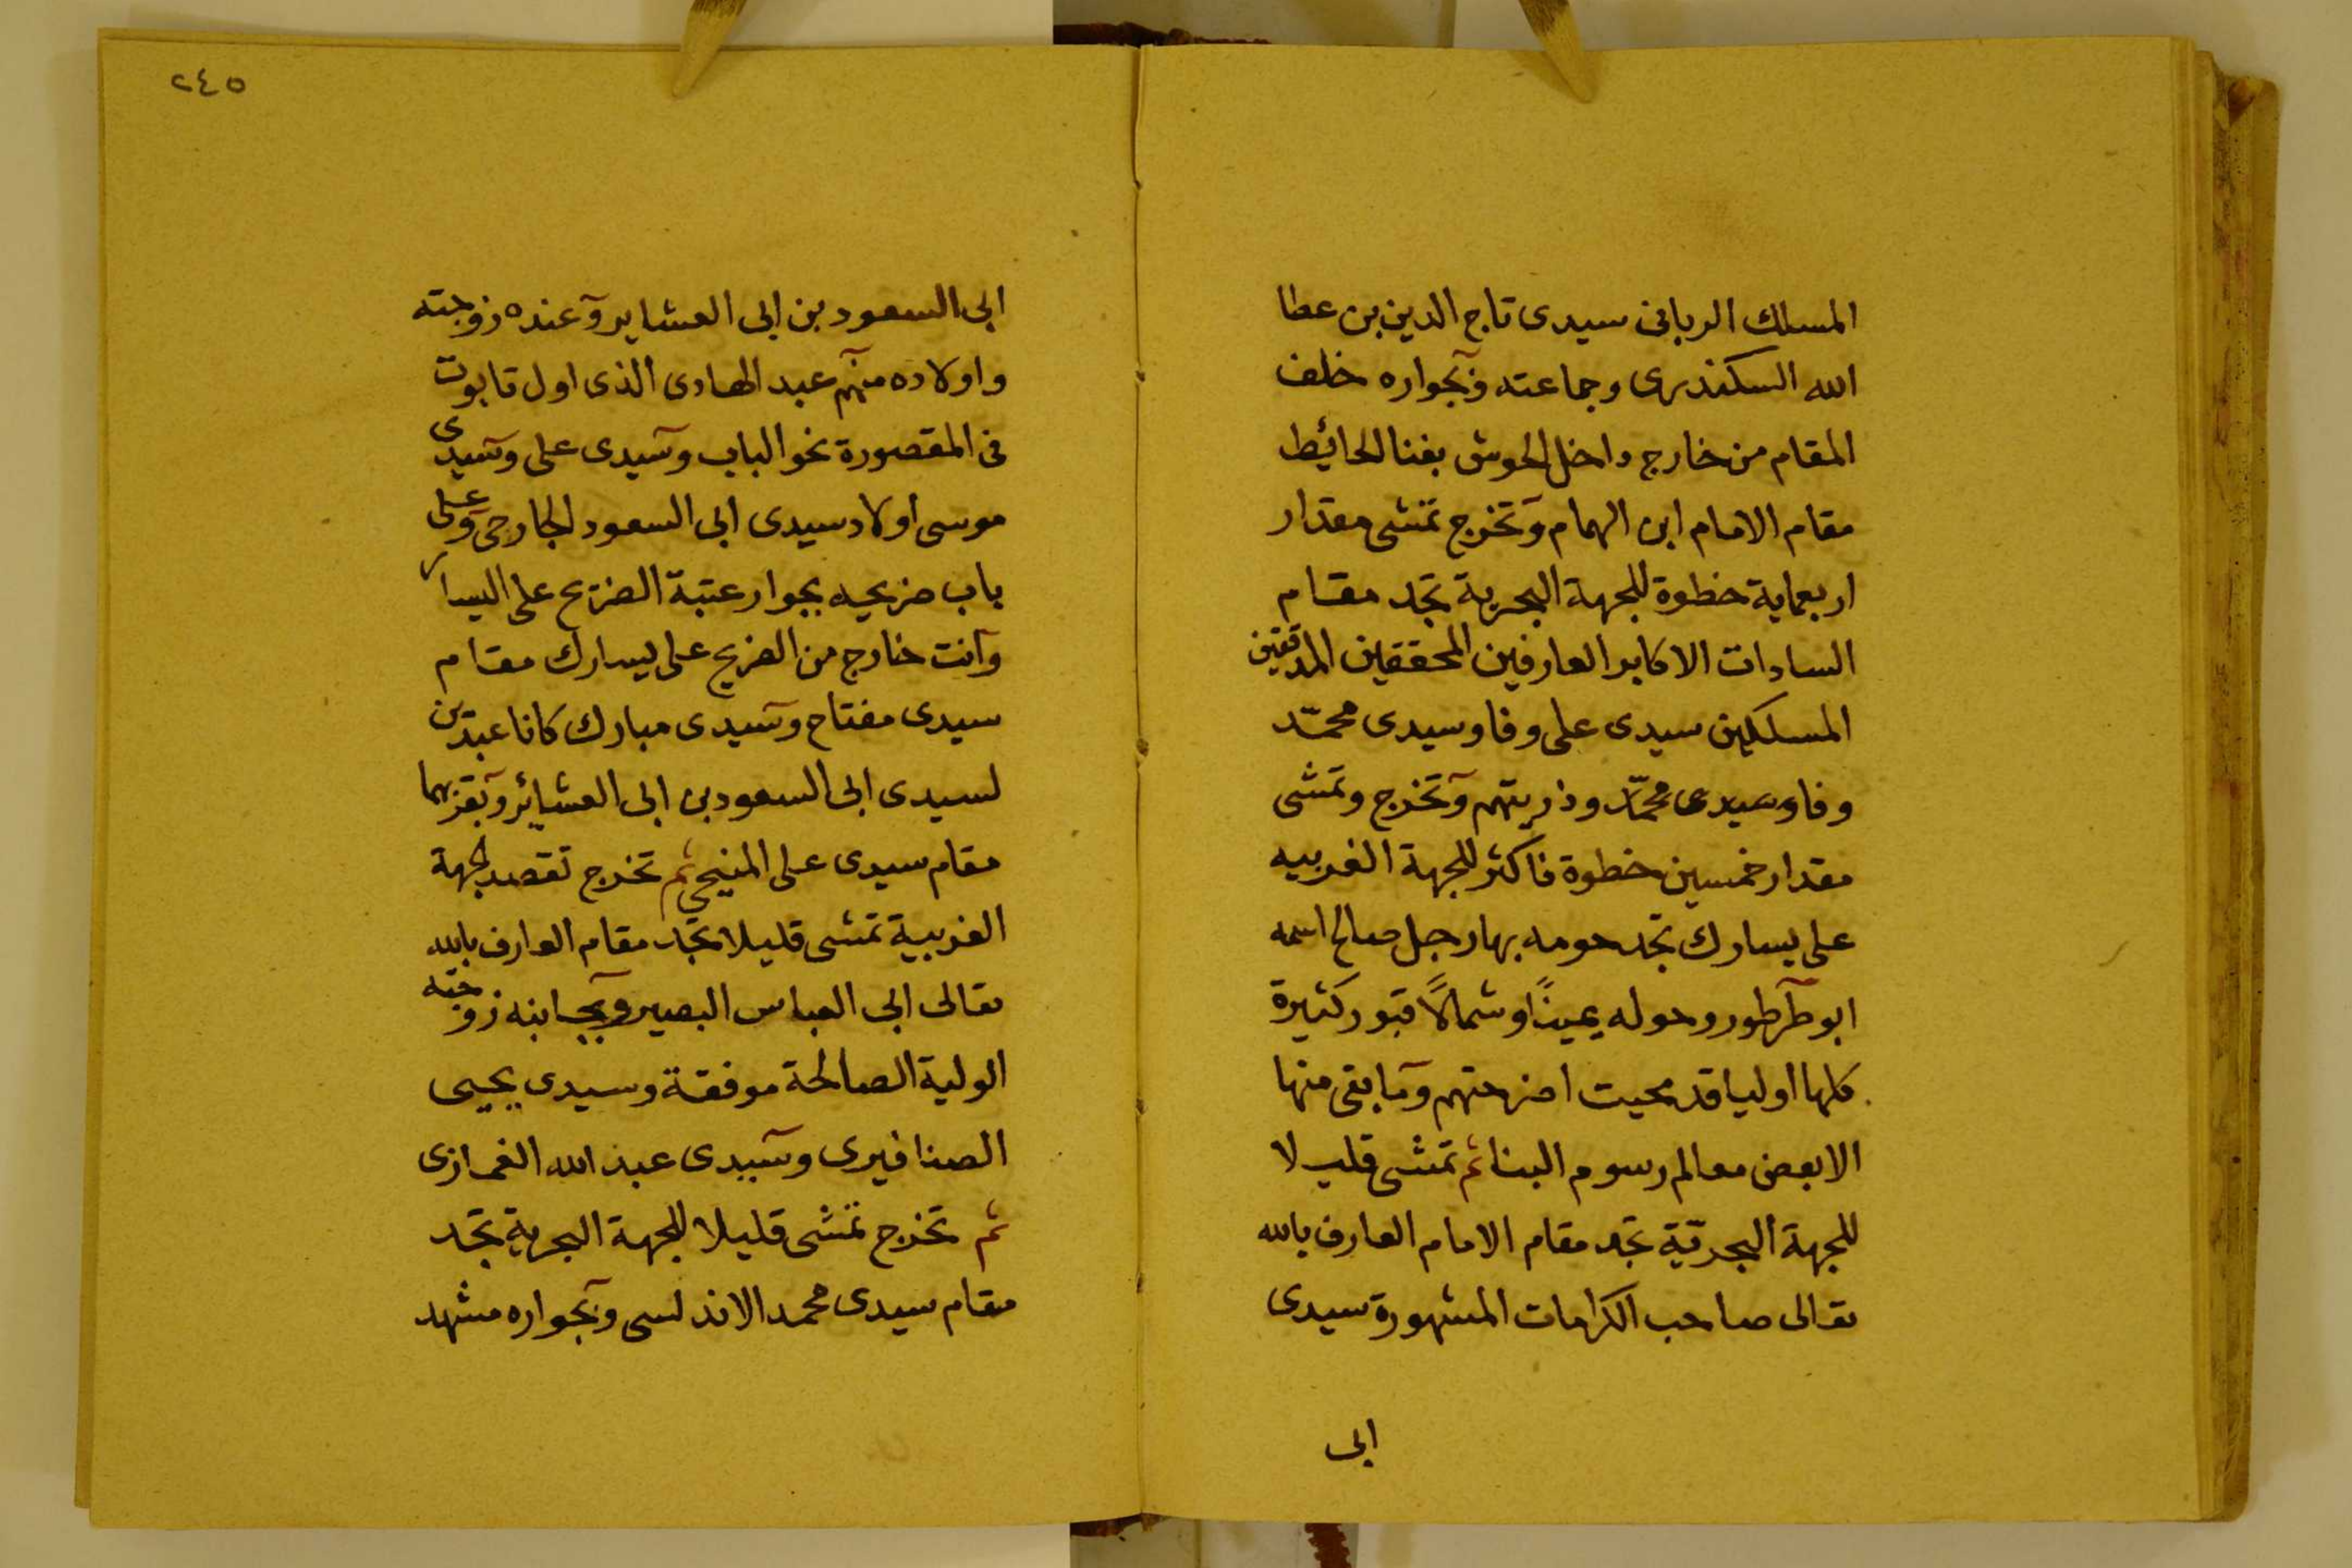 المسلك الربانى سيدى تاج الدين بن عطا
الله السكندرى وجماعته وبجواره خلف
المقام من خارج داخل الحوش بفنا الحائيط
مقام الامام ابن الهمام وتخرج تمشى مقدار
اربعماية خطوة للجهة البحرية تجد مقام
السادات الاكابر العارفين المحققين المدققين
المسلكين سيدى على وفا وسيدى محمّد
وفا وسيدى محمّد وذريتهم وتخرج وتمشى
مقدار خمسين خطوة فاكثر للجهة الغربيه
على يسارك تجد حومه بها رجل صالح اسمه
ابو طرطور وحوله يمينًا وشمالاً قبور كثيرة
كلها اوليا قد محيت اضرحتهم وما بقى منها
الا بعض معالم رسوم البنا ثم تمشى قليلا
للجهة البحريّة تجد مقام الامام العارف بالله
تعالى صاحب الكرامات المشهورة سيدى
ابى
٢٤٥
ابى السعود بن ابى العشاير وعنده زوجته
واولاده منهم عبد الهادى الذى اول تابوت
فى المقصورة نحو الباب وسيدى على وسيدى
موسى اولاد سيدى ابى السعود الجارحى وعلى
باب ضريحه بجوار عتبة الضريح على اليسار
وانت خارج من الضريح على يسارك مقام
سيدى مفتاح وسيدى مبارك كانا عبدين
لسيدى ابى السعود بن ابى العشائر وبقربهما
مقام سيدى على المنيحى ثم تخرج تقصد لجهة
الغربية تمشى قليلا تجد مقام العارف بالله
تعالى ابى العباس البصير وبجانبه زوجته
الولية الصالحة موفقة وسيدى يحيى
الصنافيرى وسيدى عبد الله الغمازى
ثم تخرج تمشى قليلا للجهة البحرية تجد
مقام سيدى محمد الاندلسى وبجواره مشهد